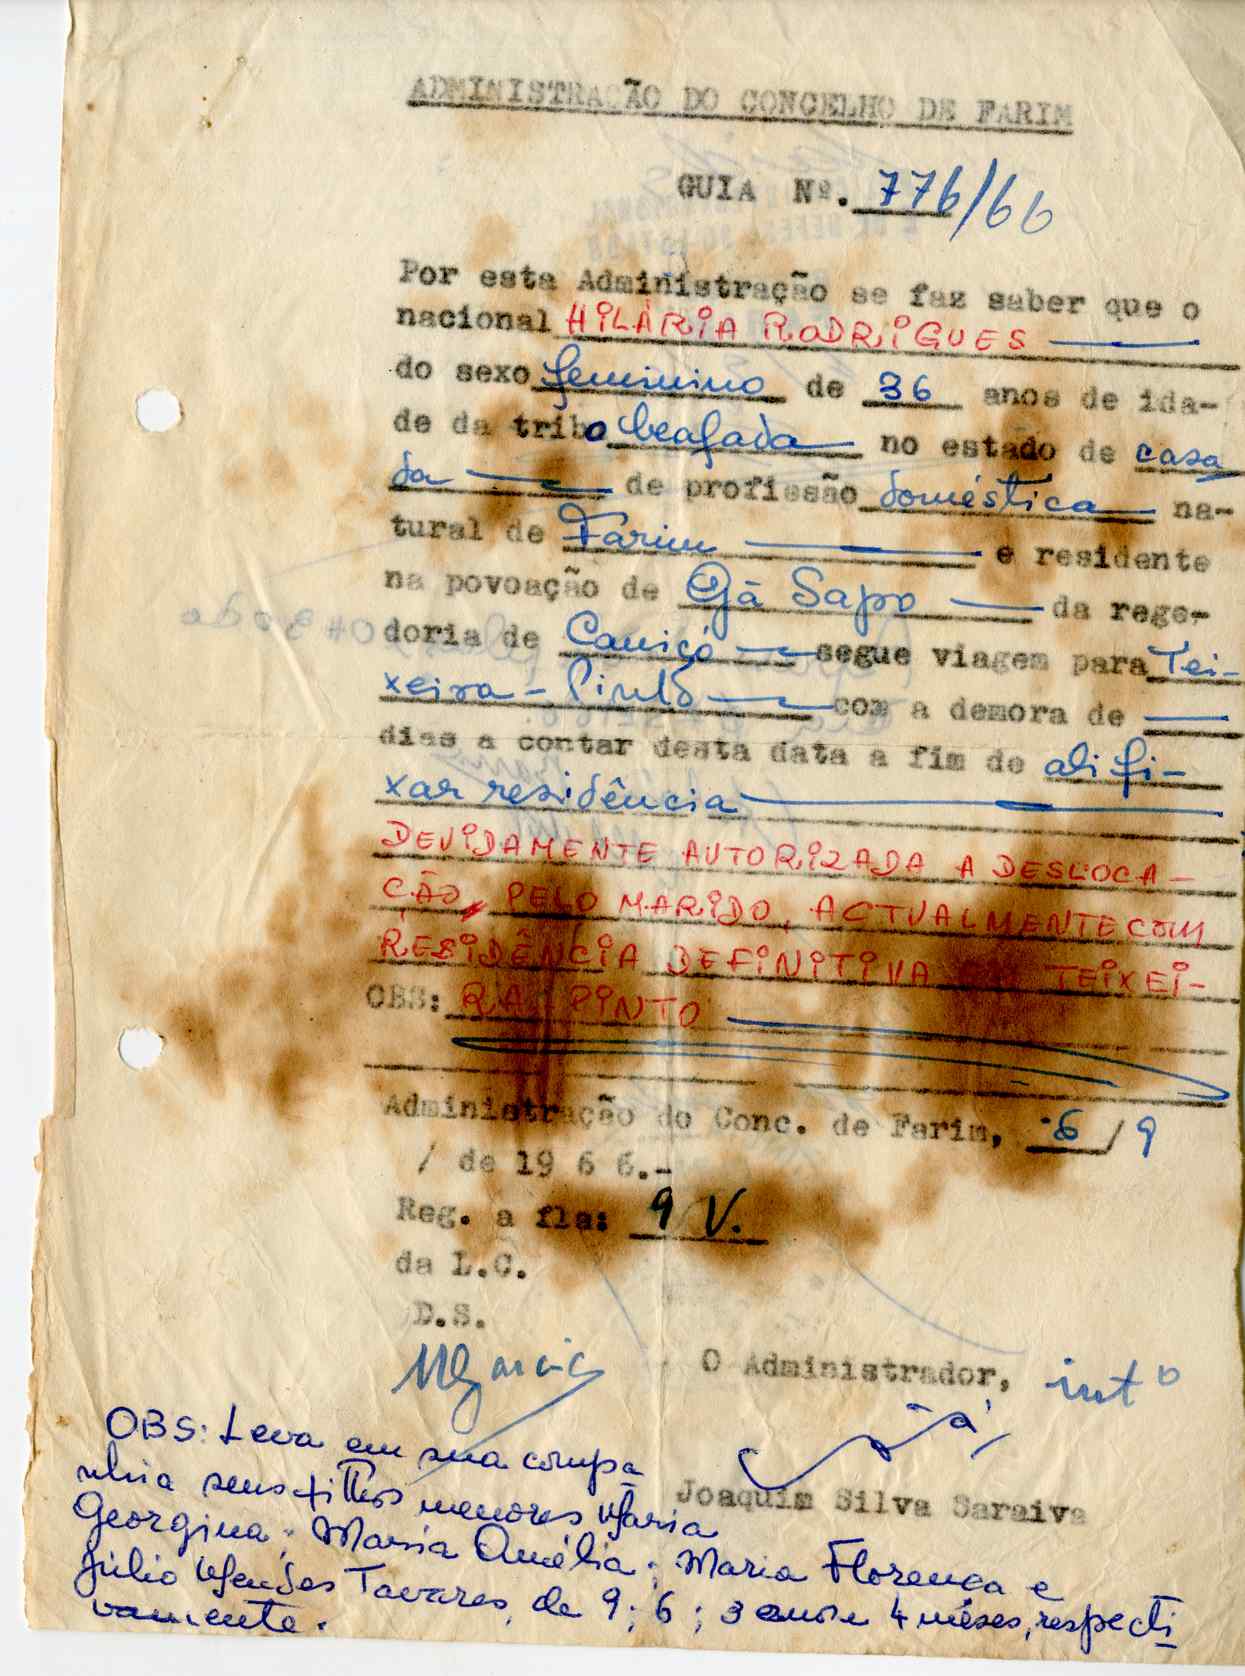 ADMINISTRAÇÃO DO CONCELHO DE FARIM
GUIA Nº. 776/66
Por esta Administração se faz saber que o
nacional HILÁRIA RODRIGUES
do sexo feminino de 36 anos de ida-
de da tribo beafada no estado de casa
da de profissão doméstica na-
tural de Farim e residente
na povoação de Gã Sapo da rege-
doria de Caniçó segue viagem para Tei-
xeira-Pinto com a demora de
dias a contar desta data a fim de ali fi-
xar residência
DEVIDAMENTE AUTORIZADA A DESLOCA-
ÇÃO, PELO MARIDO, ACTUALMENTE COM
RESIDÊNCIA DEFINITIVA EM TEIXEI-
OBS: RA-PINTO
Administração do Conc. de Farim, 6/9
/ de 19 6 6.-
Reg. a fls: 9 V.
da L.C.
D.S.
O Administrador, intº
Joaquim Silva Saraiva
OBS: Leva em sua compa
nhia seus filhos menores Maria
Georgina; Maria Amélia; Maria Florença e
Júlio Mendes Tavares, de 9; 6; 3 anos e 4 mêses, respecti
vamente.